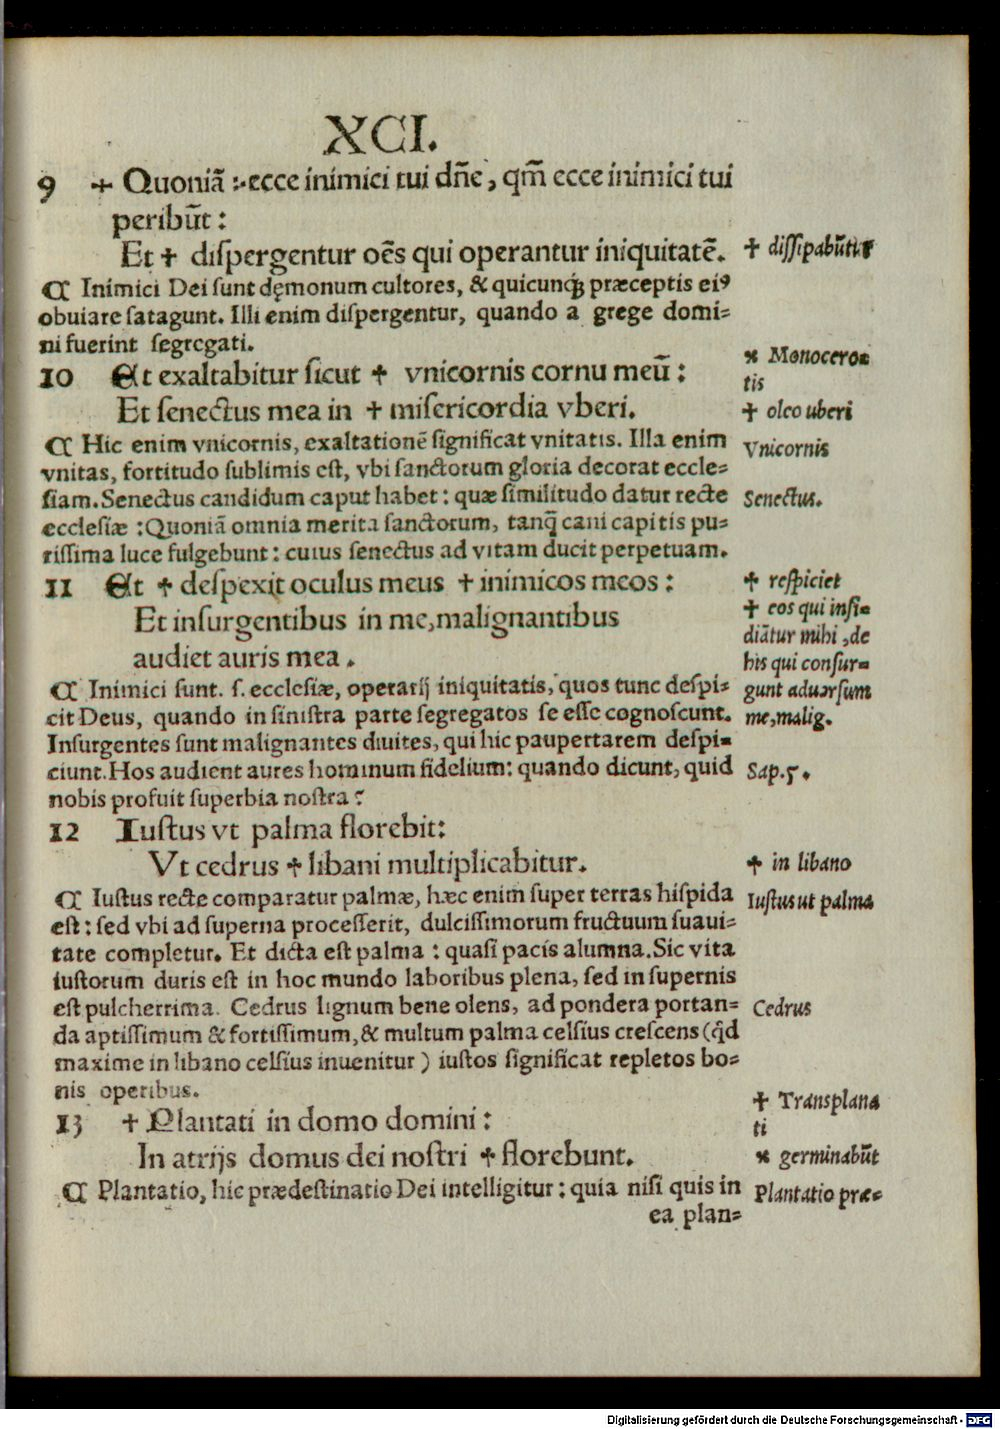 XCI.
9 ✢ Quoniā :·ecce inimici tui dñe, qm̄ ecce inimici tui
peribūt:
Et ✝ diſpergentur oēs qui operantur iniquitatē.
✝ diſſipabūtur
¶ Inimici Dei ſunt dęmonum cultores, & quicunqꝫ præceptis eiꝰ
obuiare ſatagunt. Illi enim diſpergentur, quando a grege domi⸗
ni fuerint ſegregati.
10 Et exaltabitur ſicut ✝ vnicornis cornu meū:
⁎ Monocero⸗
tis
Et ſenectus mea in ✝ miſericordia vberi.
✝ oleo uberi
¶ Hic enim vnicornis, exaltationē ſignificat vnitatis. Illa enim
Vnicornis
vnitas, fortitudo ſublimis eſt, vbi ſanctorum gloria decorat eccle⸗
ſiam. Senectus candidum caput habet: quæ ſimilitudo datur recte
Senectus.
eccleſiæ: Quoniā omnia merita ſanctorum, tanq̄ cani capitis pu⸗
riſſima luce fulgebunt: cuius ſenectus ad vitam ducit perpetuam.
11 Et ✝ deſpexit oculus meus ✝ inimicos meos:
✝ reſpiciet
✝ eos qui inſi⸗
diātur mihi, de
his qui conſur⸗
gunt aduerſum
me, malig.
Et inſurgentibus in me, malignantibus
audiet auris mea.
¶ Inimici ſunt. ſ. eccleſiæ, operarij iniquitatis, quos tunc deſpi⸗
cit Deus, quando in ſiniſtra parte ſegregatos ſe eſſe cognoſcunt.
Inſurgentes ſunt malignantes diuites, qui hic paupertarem deſpi⸗
ciunt. Hos audient aures hominum fidelium: quando dicunt, quid
Sap. 5.
nobis profuit ſuperbia noſtra?
12 Iuſtus vt palma florebit:
Vt cedrus ✝ libani multiplicabitur.
✝ in libano
¶ Iuſtus recte comparatur palmæ, hæc enim ſuper terras hiſpida
Iuſtus ut palma
eſt: ſed vbi ad ſuperna proceſſerit, dulciſſimorum fructuum ſuaui⸗
tate completur. Et dicta eſt palma: quaſi pacis alumna. Sic vita
iuſtorum duris eſt in hoc mundo laboribus plena, ſed in ſupernis
eſt pulcherrima. Cedrus lignum bene olens, ad pondera portan⸗
Cedrus
da aptiſſimum & fortiſſimum, & multum palma celſius creſcens (q̄d
maxime in libano celſius inuenitur) iuſtos ſignificat repletos bo⸗
nis operibus.
13 ✝ Plantati in domo domini:
✝ Transplana
ti
In atrijs domus dei noſtri ✝ florebunt.
⁎ germinabūt
¶ Plantatio, hic prædeſtinatio Dei intelligitur: quia niſi quis in
Plantatio præ⸗
ea plan⸗
Digitalisierung gefördert durch die Deutsche Forschungsgemeinschaft - DFG